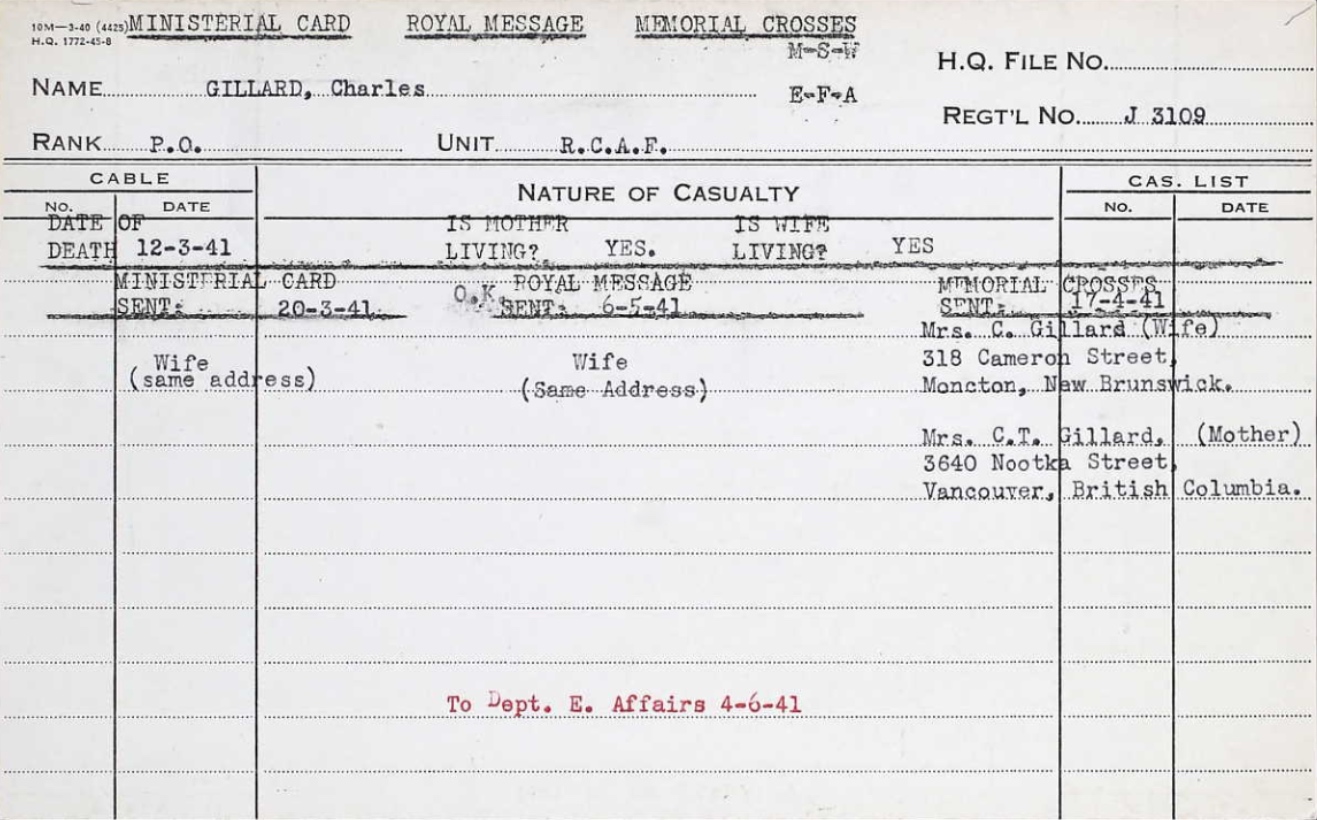 10M—3-40 (4425) MINISTERIAL CARD ROYAL MESSAGE MEMORIAL CROSSES
H.Q. 1772-45-8
M-S-W
H.Q. FILE NO.
NAME GILLARD, Charles
E-F-A
REGT'L NO. J 3109
RANK P.O. UNIT R.C.A.F.
CABLE NATURE OF CASUALTY CAS. LIST
NO. DATE NO. DATE
DATE OF IS MOTHER IS WIFE
DEATH 12-3-41 LIVING? YES. LIVING? YES
MINISTERIAL CARD O.K. ROYAL MESSAGE MEMORIAL CROSSES
SENT: 20-3-41 SENT: 6-5-41 SENT: 17-4-41
Mrs. C. Gillard (Wife)
Wife Wife 318 Cameron Street,
(same address) (Same Address) Moncton, New Brunswick.
Mrs. C.T. Gillard, (Mother)
3640 Nootka Street,
Vancouver, British Columbia.
To Dept. E. Affairs 4-6-41